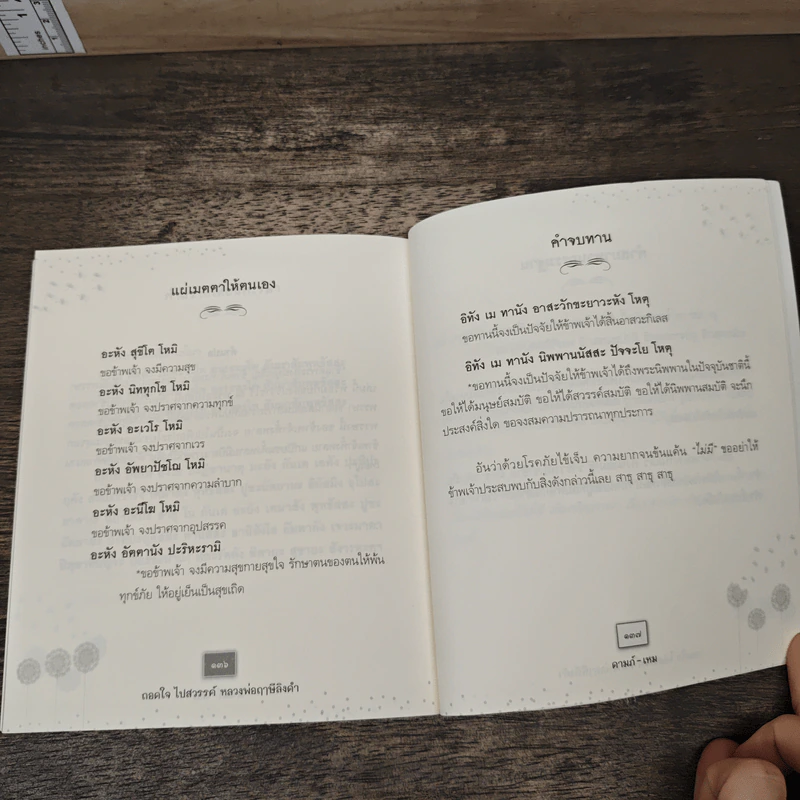 แผ่เมตตาให้ตนเอง
อะหัง สุขิโต โหมิ
ขอข้าพเจ้า จงมีความสุข
อะหัง นิททุกโข โหมิ
ขอข้าพเจ้า จงปราศจากความทุกข์
อะหัง อะเวโร โหมิ
ขอข้าพเจ้า จงปราศจากเวร
อะหัง อัพยาปัชโฌ โหมิ
ขอข้าพเจ้า จงปราศจากความลำบาก
อะหัง อะนีโฆ โหมิ
ขอข้าพเจ้า จงปราศจากอุปสรรค
อะหัง อัตตานัง ปะริหะรามิ
"ขอข้าพเจ้า จงมีความสุขกายสุขใจ รักษาตนของตนให้พ้น
ทุกข์ภัย ให้อยู่เย็นเป็นสุขเถิด
๑๓๖
ถอดใจ ไปสวรรค์ หลวงพ่อฤๅษีลิงดำ
คำจบทาน
อิทัง เม ทานัง อาสะวักขะยาวะหัง โหตุ
ขอทานนี้จงเป็นปัจจัยให้ข้าพเจ้าได้สิ้นอาสวะกิเลส
อิทัง เม ทานัง นิพพานนัสสะ ปัจจะโย โหตุ
"ขอทานนี้จงเป็นปัจจัยให้ข้าพเจ้าได้ถึงพระนิพพานในปัจจุบันชาตินี้
ขอให้ได้มนุษย์สมบัติ ขอให้ได้สวรรค์สมบัติ ขอให้ได้นิพพานสมบัติ จะนึก
ประสงค์สิ่งใด ขอจงสมความปรารถนาทุกประการ
อันว่าด้วยโรคภัยไข้เจ็บ ความยากจนข้นแค้น "ไม่มี" ขออย่าให้
ข้าพเจ้าประสบพบกับสิ่งดังกล่าวนี้เลย สาธุ สาธุ สาธุ
๑๓๗
คามภ์-เหม